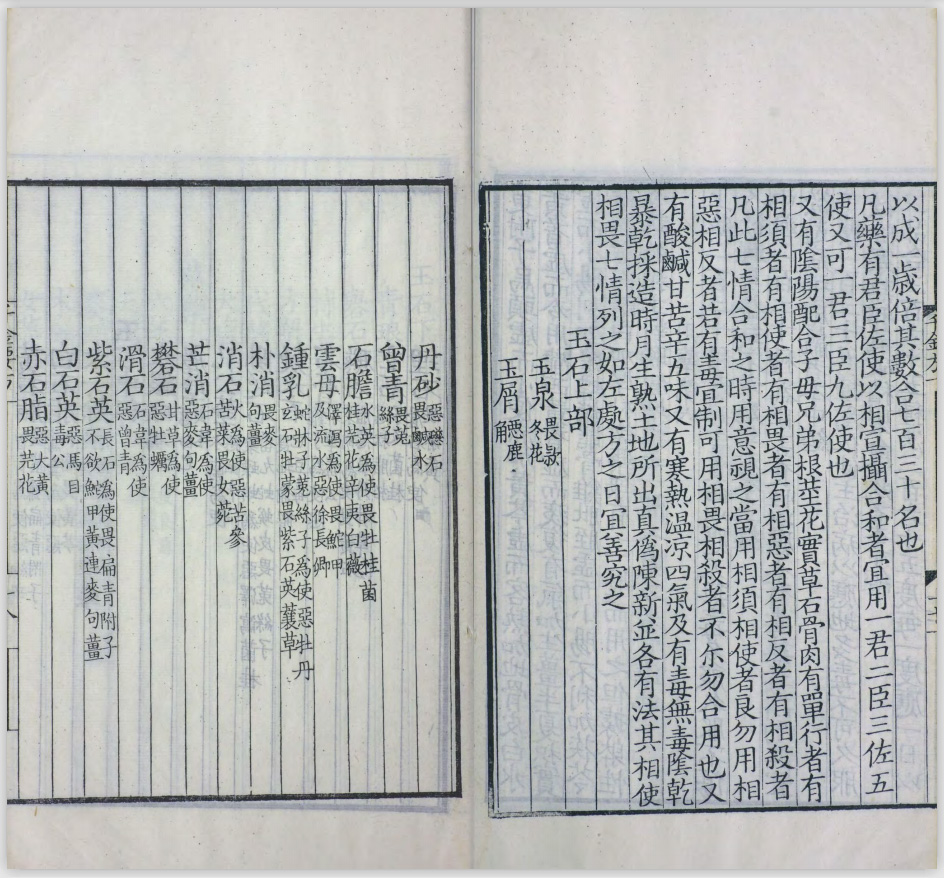 以成一歲倍其數合七百三十名也
凡藥有君臣佐使以相宣攝合和者宜用一君二臣三佐五
使又可一君三臣九佐使也
又有陰陽配合子母兄弟根莖花實草石骨肉有單行者有
相須者有相使者有相畏者有相惡者有相反者有相殺者
凡此七情合和之時用意視之當用相須相使者良勿用相
惡相反者若有毒宜制可用相畏相殺者不尒勿合用也又
有酸鹹甘苦辛五味又有寒熱温凉四氣及有毒無毒陰乾
暴乾採造時月生熟土地所出真僞陳新並各有法其相使
相畏七情列之如左處方之日宜善究之
玉石上部
玉泉畏欵冬花
玉屑惡鹿
丹砂惡磁石畏鹹水
曾青畏菟絲子
石膽水英為使畏牡桂菌桂芫花辛夷白薇
雲母澤瀉為使畏鮀甲及流水惡徐長卿
鍾乳蛇牀子菟絲子為使惡牡丹玄石牡蒙畏紫石英蘘草
朴消畏麥句薑
消石火為使惡苦參苦菜畏女菀
芒消石韋為使惡麥句薑
礬石甘草為使惡牡蠣
滑石石韋為使惡曾青
紫石英長石為使畏扁青附子不欲鮀甲黃連麥句薑
白石英惡馬目毒公
赤石脂惡大黃畏芫花